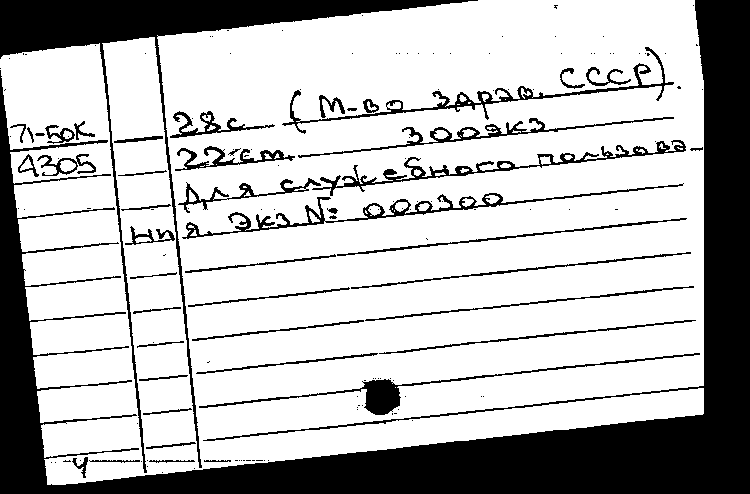 71-50К 28с. (М-во здрав. СССР).
4305 22 см. 300 экз.
Для служебного пользова-
ния. Экз. №: 000300
4